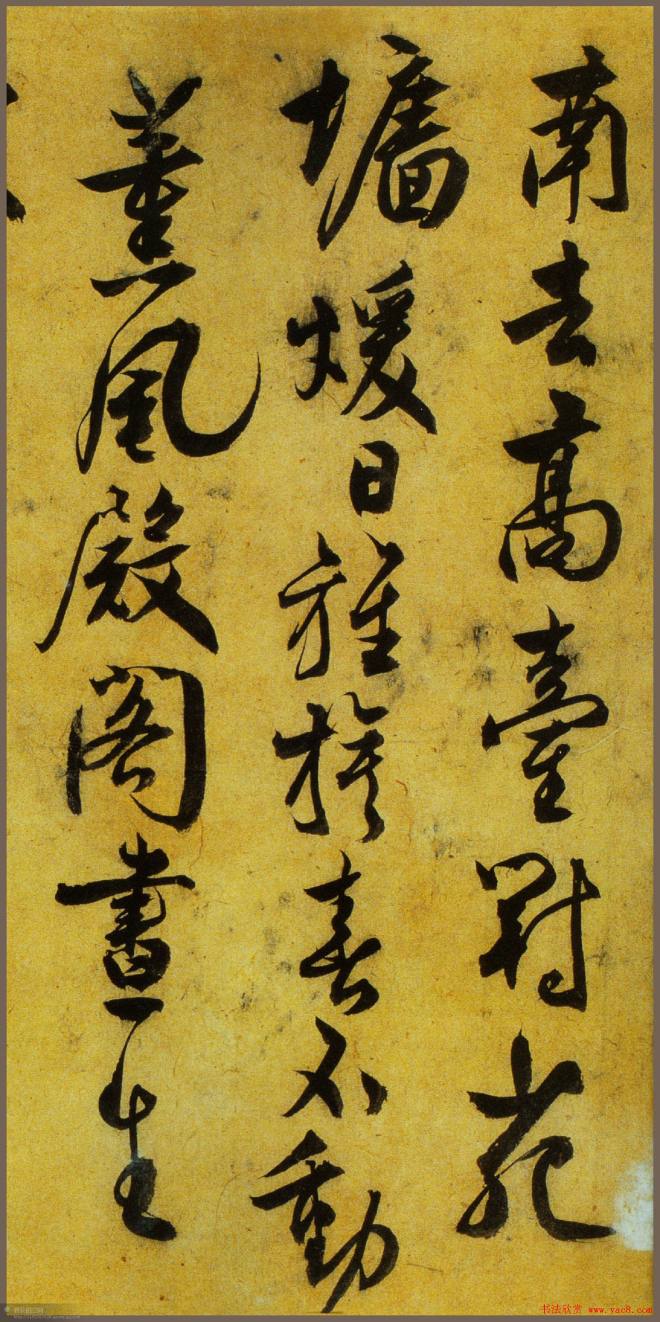 南去高臺對苑
墻煖日旌旗春不動
薰風殿閣晝生
书法欣赏 www.yac8.com